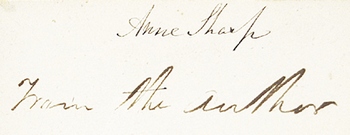 Anne Sharp
From the author